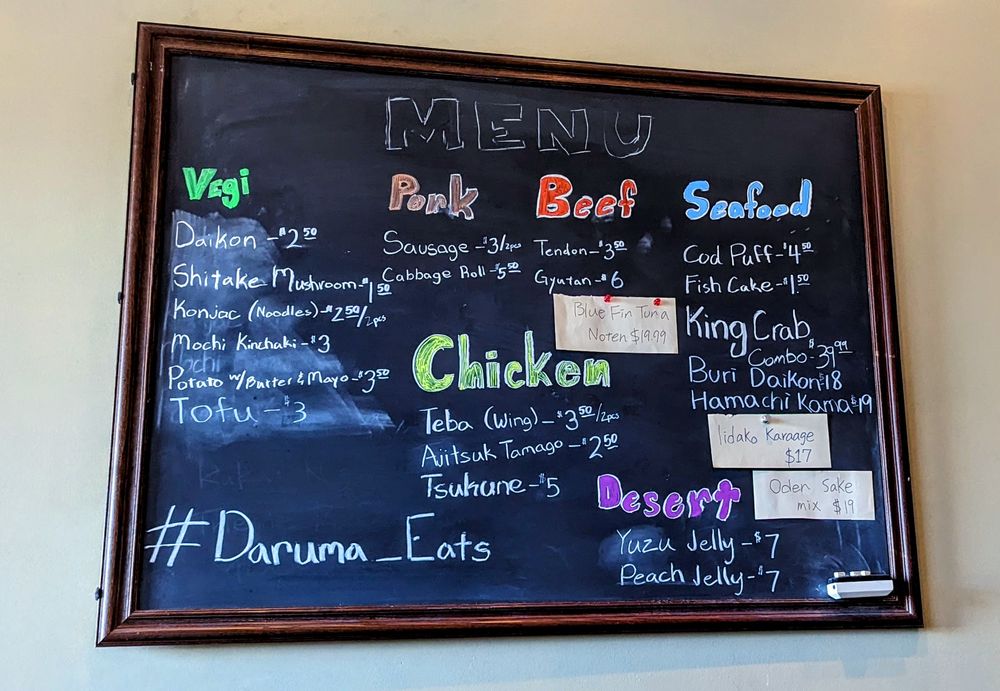 MENU
Vegi
Daikon - $2.50
Shitake Mushroom - $1.50
Konjac (Noodles) - $2.50/2pcs
Mochi Kinchaki - $3
Potato w/Butter & Mayo - $3.50
Tofu - $3
Pork
Sausage - $3/2pcs
Cabbage Roll - $5.50
Beef
Tendon - $3.50
Gyutan - $6
Blue Fin Tuna
Noten $19.99
Chicken
Teba (Wing) - $3.50/2pcs
Ajitsuk Tamago - $2.50
Tsukune - $5
Seafood
Cod Puff - $4.50
Fish Cake - $1.50
King Crab
Combo - $39.99
Buri Daikon $18
Hamachi Kama $19
Iidako Karaage
$17
Oden Sake
mix $19
Desert
Yuzu Jelly - $7
Peach Jelly - $7
#Daruma_Eats